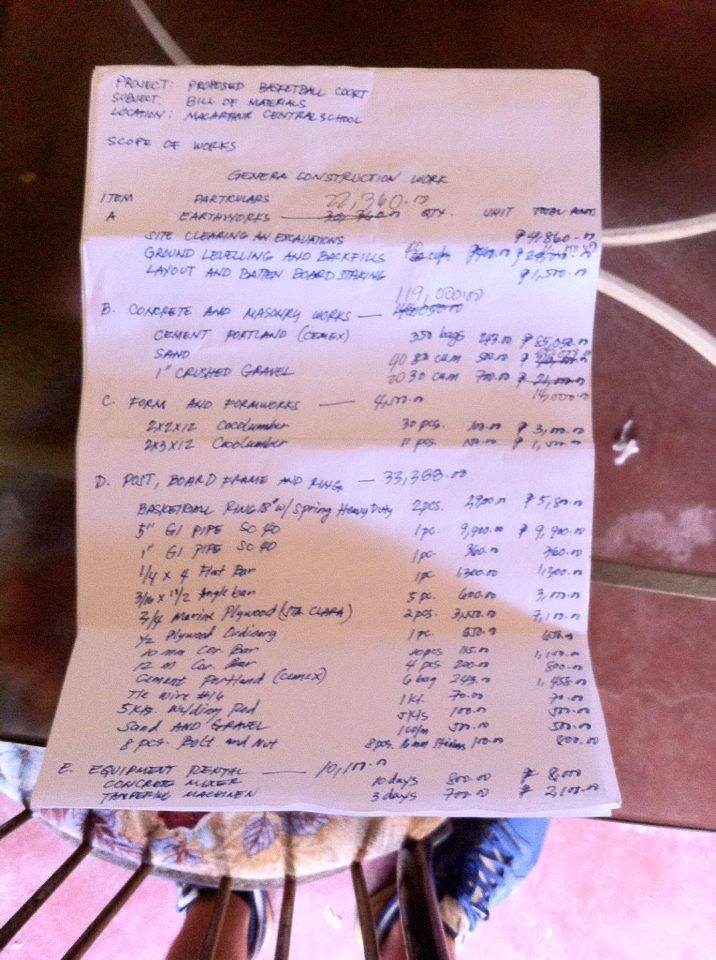 PROJECT: PROPOSED BASKETBALL COURT
SUBJECT: BILL OF MATERIALS
LOCATION: MACARTHUR CENTRAL SCHOOL
SCOPE OF WORKS
GENERA CONSTRUCTION WORK
ITEM PARTICULARS 22,360.00
A EARTHWORKS — QTY. UNIT TOTAL AMT.
SITE CLEARING AN EXCAVATIONS ₱ 4,860.00
GROUND LEVELLING AND BACKFILLS
LAYOUT AND BATTEN BOARD STAKING ₱1,500.00
119,000.00
B. CONCRETE AND MASONRY WORKS —
CEMENT PORTLAND (CEMEX) 350 bags 243.00 ₱ 85,050.00
SAND 40 cum 500.00 ₱
1" CRUSHED GRAVEL 20 30 cum 700.00 ₱ 21,000.00
14,000.00
C. FORM AND FORMWORKS — 4,500.00
2x2x12 Cocolumber 30 pcs. 100.00 ₱ 3,000.00
2x3x12 Cocolumber 11 pcs. ₱ 1,500.00
D. POST, BOARD FRAME AND RING — 33,388.00
BASKETBALL RING 18" w/ Spring Heavy Duty 2 pcs. 2,900.00 ₱ 5,800.00
5" GI PIPE SC 40 1 pc. 9,900.00 ₱ 9,900.00
1" GI PIPE SC 40 1 pc. 360.00 360.00
1/4 x 4 Flat Bar 1 pc 1,300.00 1,300.00
3/16 x 1 1/2 Angle bar 5 pc 600.00 3,000.00
3/4 Marine Plywood (STA. CLARA) 2 pcs. 3,550.00 7,100.00
1/2 Plywood Ordinary 1 pc 650.00 650.00
10 mm Cor. Bar 10 pcs 115.00 1,150.00
12 m Cor. Bar 4 pcs 200.00 800.00
Cement Portland (Cemex) 6 bag 243.00 1,458.00
Tie Wire #16 1 Kl. 70.00 70.00
5 Kls. Welding Rod 5 Kls 100.00 500.00
Sand AND GRAVEL 500.00 500.00
8 pcs. Bolt and Nut 8 pcs. 16mm 100.00 800.00
E. EQUIPMENT RENTAL — 10,100.00
CONCRETE MIXER 10 days 800.00 ₱ 8,000
TAMPERING MACHINEN 3 days 700.00 ₱ 2,100.00